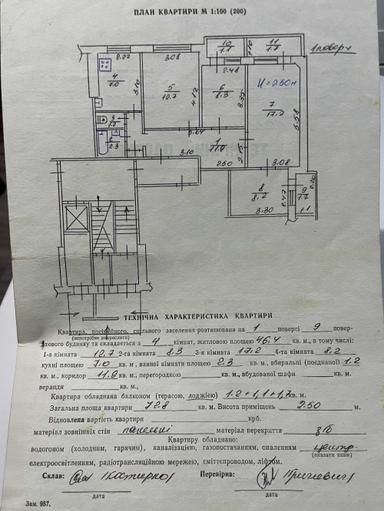 ПЛАН КВАРТИРИ М 1:100 (200)
1 поверх
10
1.1
11
1.2
2.22
3.08
2.48
H = 2.50 м
4
7.0
5
12.7
6
8.3
7
17.2
3.10
2.50
3.08
8
8.2
9
1.7
3.30
ТЕХНІЧНА ХАРАКТЕРИСТИКА КВАРТИРИ
Квартира, посімейного, спільного заселення розташована на 1 поверсі 9 повер-
(непотрібне викреслити)
хового будинку та складається з 4 кімнат, житловою площею 46.4 кв. м, в тому числі:
1-а кімната 12,7 2-га кімната 8.3 3-я кімната 17.2 4-та кімната 8.2
кухні площею 7.0 кв. м, ванної кімнати площею 2.3 кв. м, вбиральні (поєднаної) 1.2
кв. м, коридор 11.9 кв. м, перегородкою кв. м, вбудованої шафи кв. м,
веранди кв. м,
Квартира обладнана балконом (терасою, лоджією) 1.2+1.1+1.7 кв. м.
Загальна площа квартири 72.8 кв. м. Висота приміщень 2.50 м.
Відновлена вартість квартири крб.
матеріал зовнішніх стін панельні матеріал перекриття з/б
Квартиру обладнано:
водогоном (холодним, гарячим), каналізацією, газопостачанням, опаленням центр.
(вказати яким)
електроосвітленням, радіотрансляційною мережею, сміттєпроводом, ліфтом.
Склав: Перевірила:
дата дата
Зам. 957.